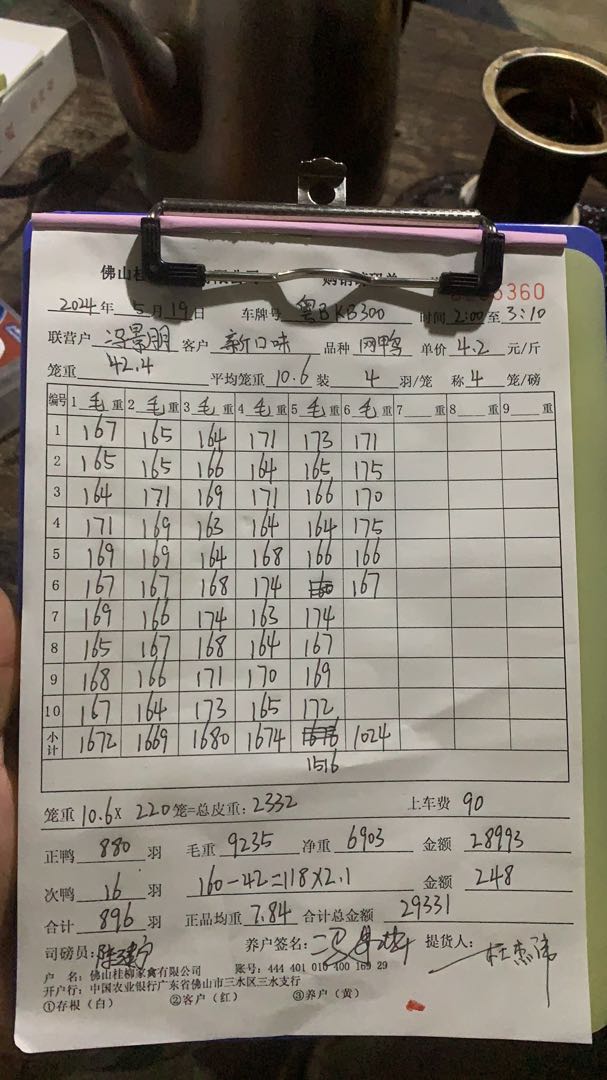 佛山桂
5360
2024年 5月19日 车牌号 粤BKB300 时间 2:00 至 3:10
联营户 冯景朋 客户 新口味 品种 网鸭 单价 4.2 元/斤
笼重 42.4 平均笼重 10.6 装 4 羽/笼 称 4 笼/磅
编号 1 毛 重 2 毛 重 3 毛 重 4 毛 重 5 毛 重 6 毛 重 7 重 8 重 9 重
1 167 165 164 171 173 171
2 165 165 166 164 165 175
3 164 171 169 171 166 170
4 171 169 163 164 164 175
5 169 169 164 168 166 166
6 167 167 168 174 160 167
7 169 166 174 163 174
8 165 167 168 164 167
9 168 166 171 170 169
10 167 164 173 165 172
小计 1672 1669 1680 1674 1676 1024
1516
笼重 10.6 × 220 笼=总皮重: 2332 上车费 90
正鸭 880 羽 毛重 9235 净重 6903 金额 28993
次鸭 16 羽 160-42=118×2.1 金额 248
合计 896 羽 正品均重 7.84 合计总金额 29331
司磅员: 养户签名: 提货人:
户 名: 佛山桂柳家禽有限公司 账号: 444 401 010 400 169 29
开户行: 中国农业银行广东省佛山市三水区三水支行
①存根(白) ②客户(红) ③养户(黄)